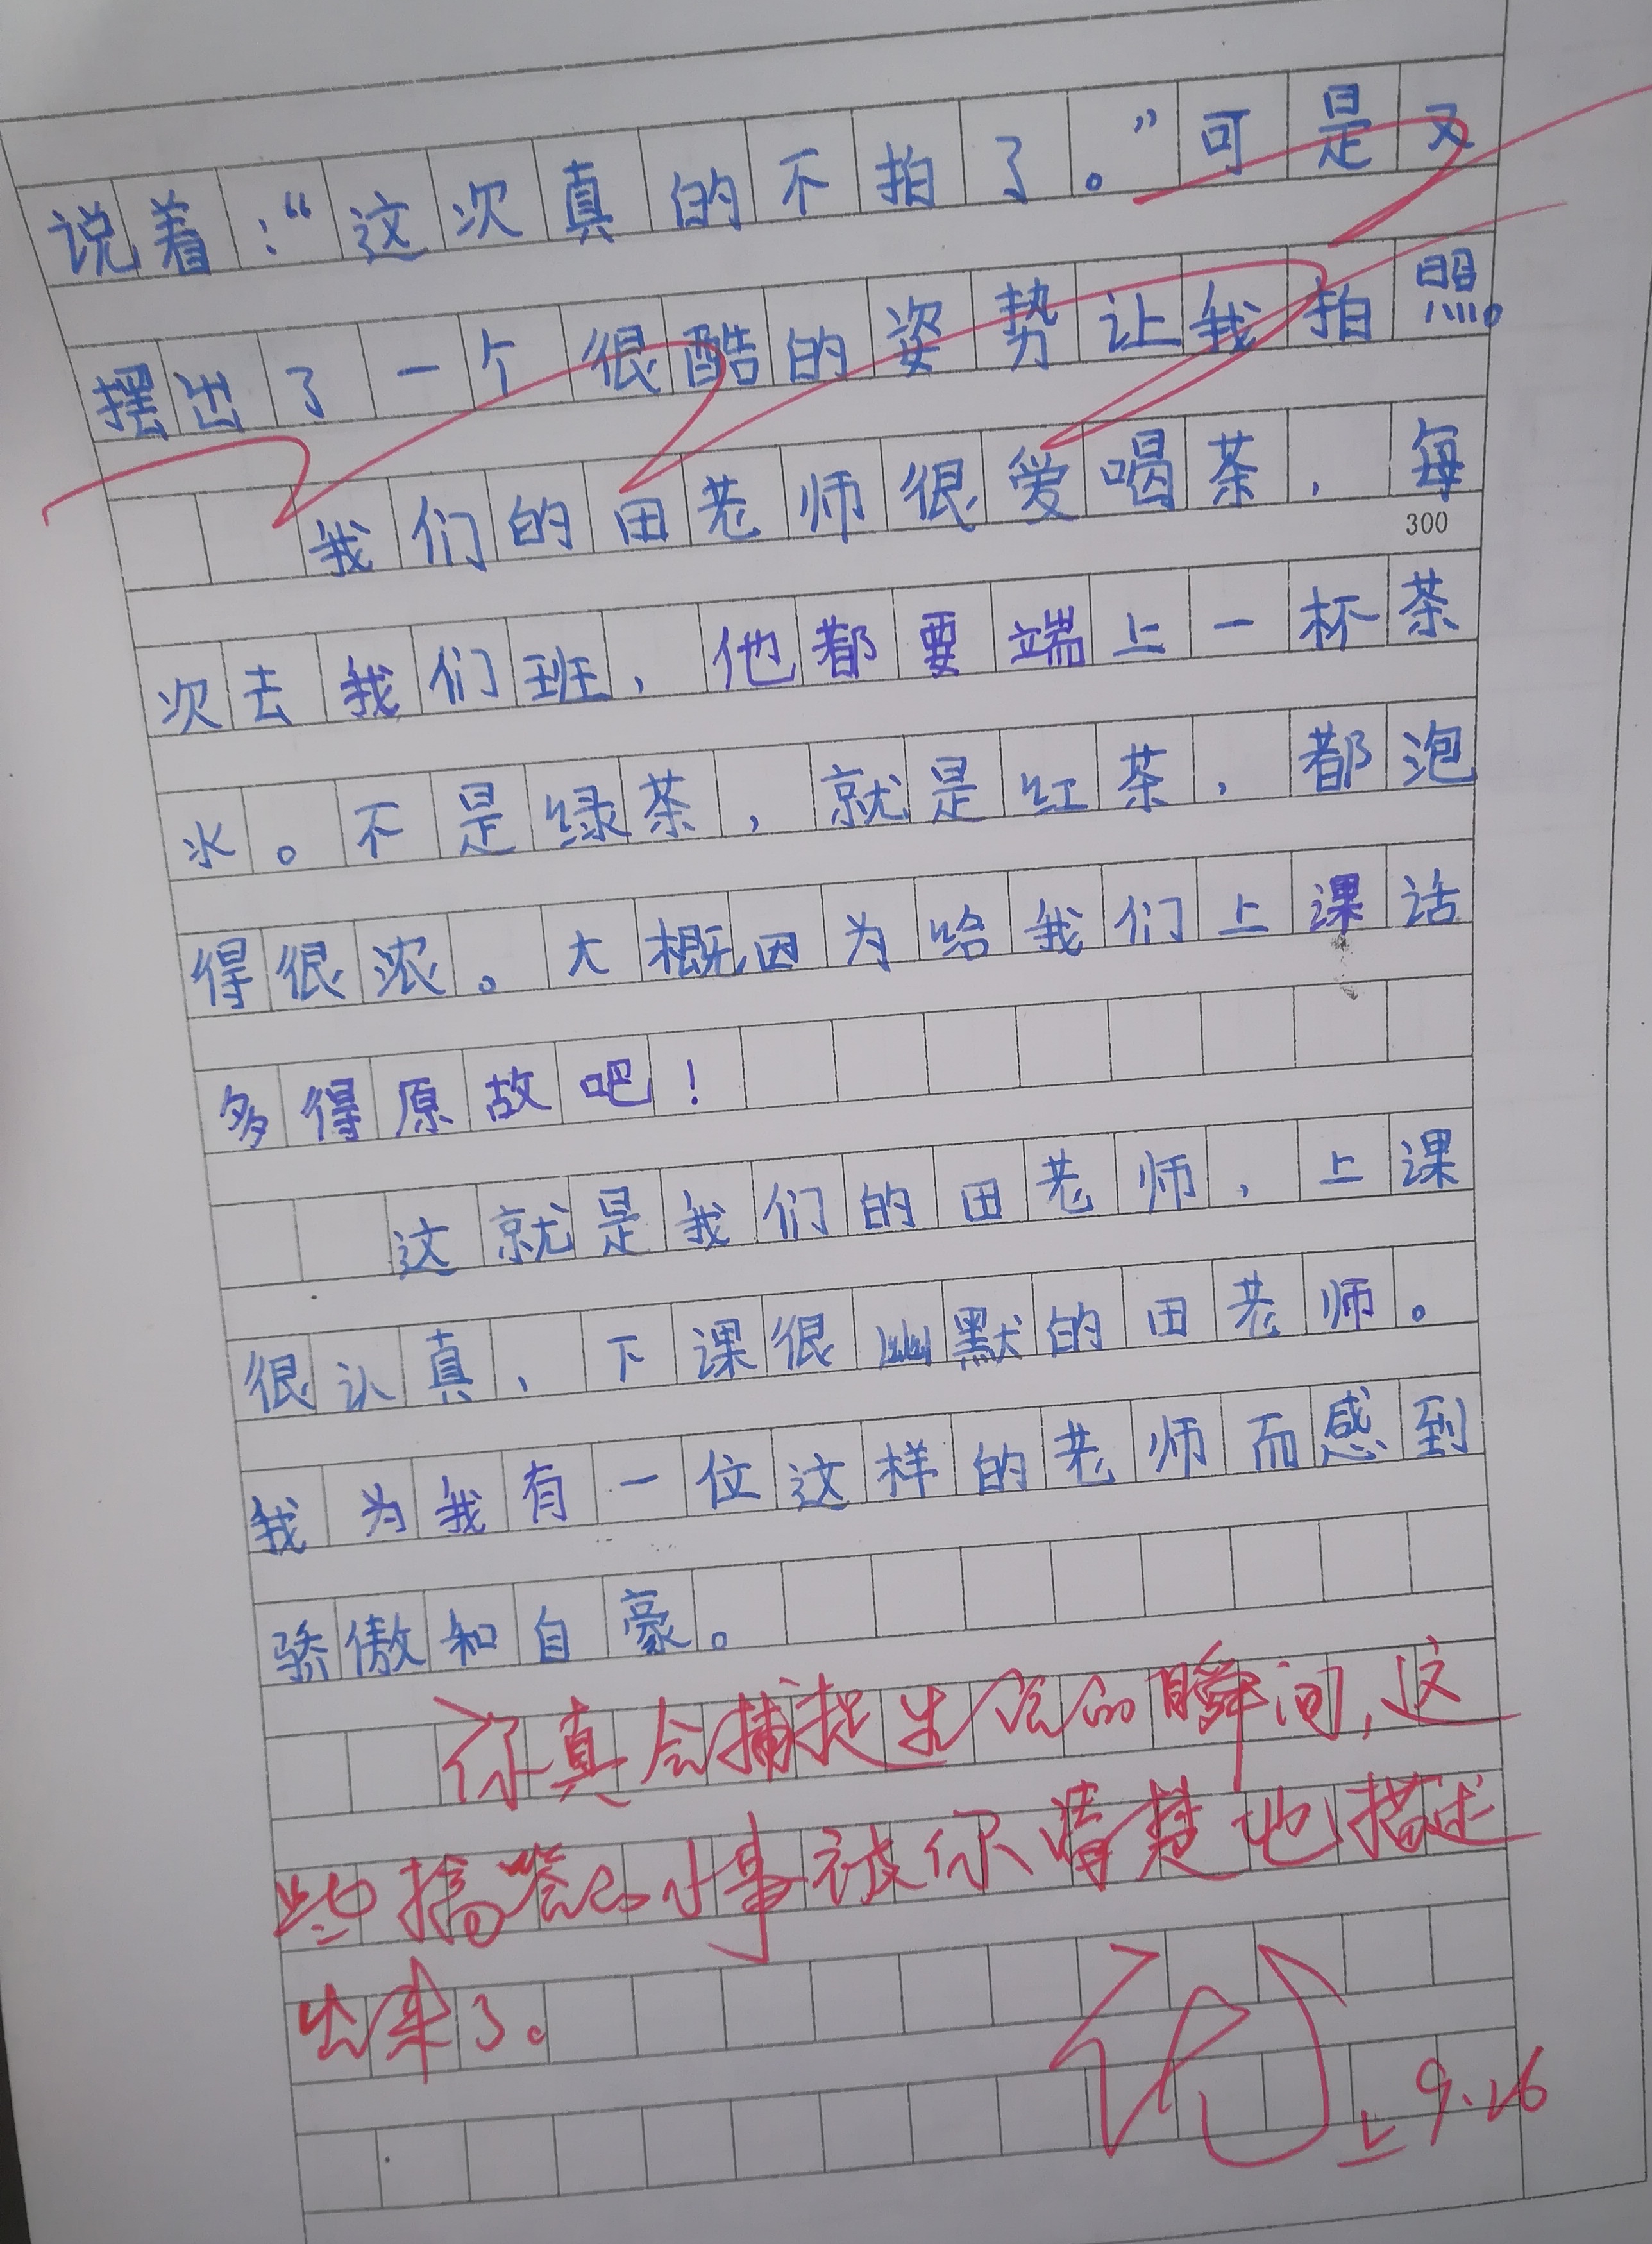 说着：“这次真的不拍了。”可是又
摆出了一个很酷的姿势让我拍照。
我们的田老师很爱喝茶，每
300
次去我们班，他都要端上一杯茶
水。不是绿茶，就是红茶，都泡
得很浓。大概因为给我们上课话
多得原故吧！
这就是我们的田老师，上课
很认真，下课很幽默的田老师。
我为我有一位这样的老师而感到
骄傲和自豪。
你真会捕捉生活的瞬间，这
些搞笑的小事被你清楚地描述
出来了。
9.26